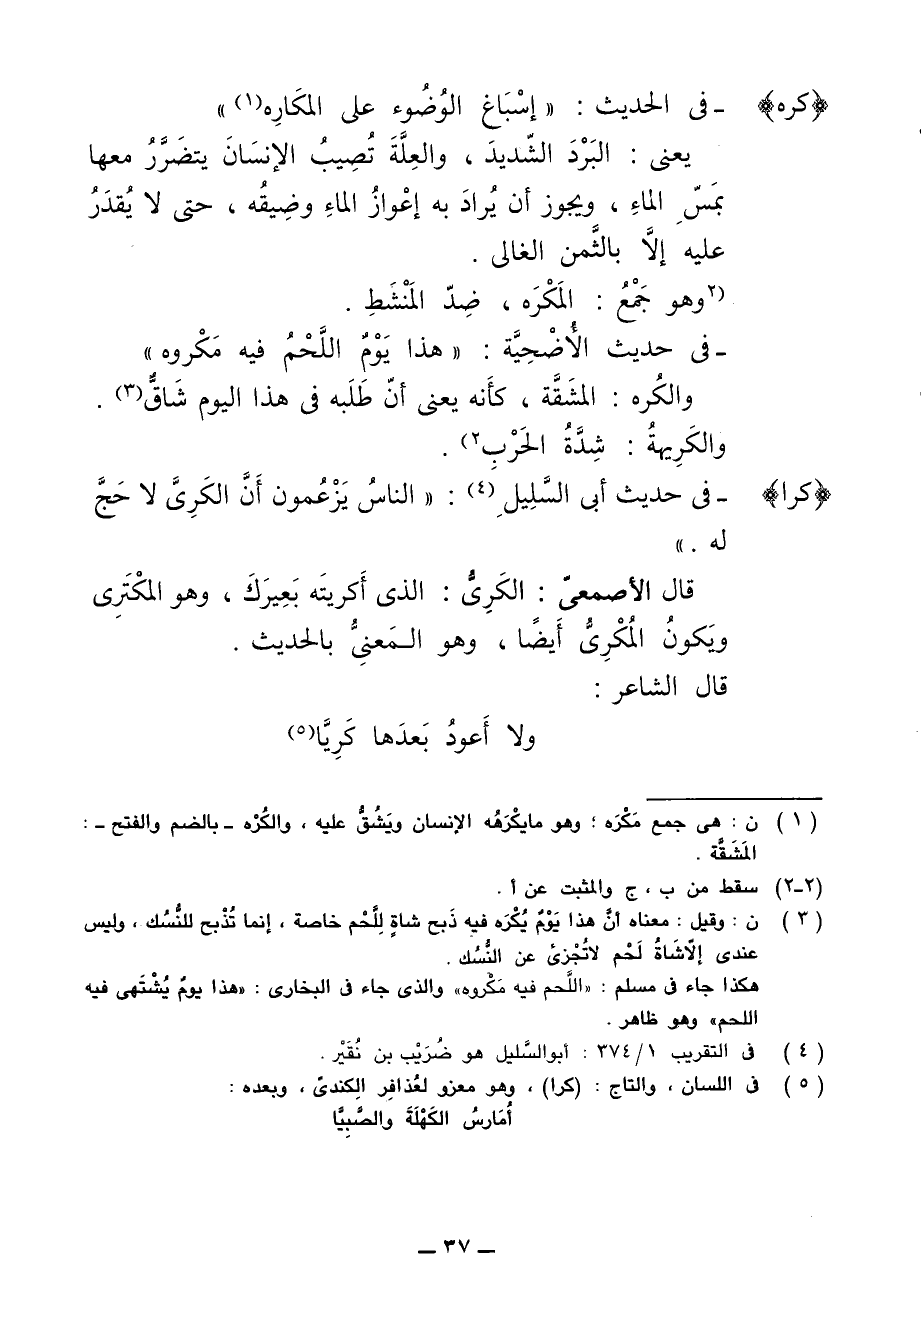 ﴿كره﴾ ـ فى الحديث : « إسْبَاغ الوُضُوء على المكَارِه(١) »
يعنى : البَرْدَ الشّديدَ ، والعِلَّةَ تُصِيبُ الإنسَانَ يتضَرَّرُ معها
بمَسِّ الماءِ ، ويجوز أن يُرادَ به إعْوازُ الماءِ وضِيقُه ، حتى لا يُقدَرُ
عليه إلَّا بالثَّمن الغالى .
(٢وهو جَمْعُ : المَكْرَه ، ضِدّ المَنْشَطِ .
ـ فى حديث الأُضْحِيَّة : « هذا يَوْمٌ اللَّحْمُ فيه مَكْروه »
والكُره : المشَقَّة ، كأَنه يعنى أنّ طَلَبه فى هذا اليوم شَاقٌّ(٣) .
والكَرِيهةُ : شِدَّةُ الحَرْبِ٢) .
﴿كرا﴾ ـ فى حديث أبى السَّلِيلِ (٤) : « الناسُ يَزْعُمون أَنَّ الكَرِىَّ لا حَجَّ
له . »
قال الأصمعىّ : الكَرِىُّ : الذى أَكريتَه بَعِيرَكَ ، وهو المكْتَرِى
ويَكونُ المُكْرِىُّ أَيضًا ، وهو المَعنِىُّ بالحديث .
قال الشاعر :
ولا أَعودُ بَعدَها كَرِيَّا(٥)
(١) ن : هى جمع مَكْرَه ؛ وهو مايكْرَهُه الإنسان ويَشُقُّ عليه ، والكُرْه ـ بالضم والفتح ـ :
المَشَقَّة .
(٢ـ٢) سقط من ب ، ج والمثبت عن أ .
(٣) ن : وقيل : معناه أنَّ هذا يَوْمٌ يُكْرَه فيه ذَبح شاةٍ لِلَّحْم خاصة ، إنما تُذْبح للنُّسك ، وليس
عندى إلّاشَاةُ لَحْم لاتُجْزِئ عن النُّسُك .
هكذا جاء فى مسلم : «اللَّحم فيه مَكْروه» والذى جاء فى البخارى : «هذا يومٌ يُشْتَهى فيه
اللحم» وهو ظاهر .
(٤) فى التقريب ١/ ٣٧٤ : أبوالسَّليل هو ضُرَيْب بن نُقَيْر .
(٥) فى اللسان ، والتاج : (كرا) ، وهو معزو لعُذافر الكِندىّ ، وبعده :
أُمَارسُ الكَهْلَةَ والصَّبِيَّا
ـ ٣٧ ـ